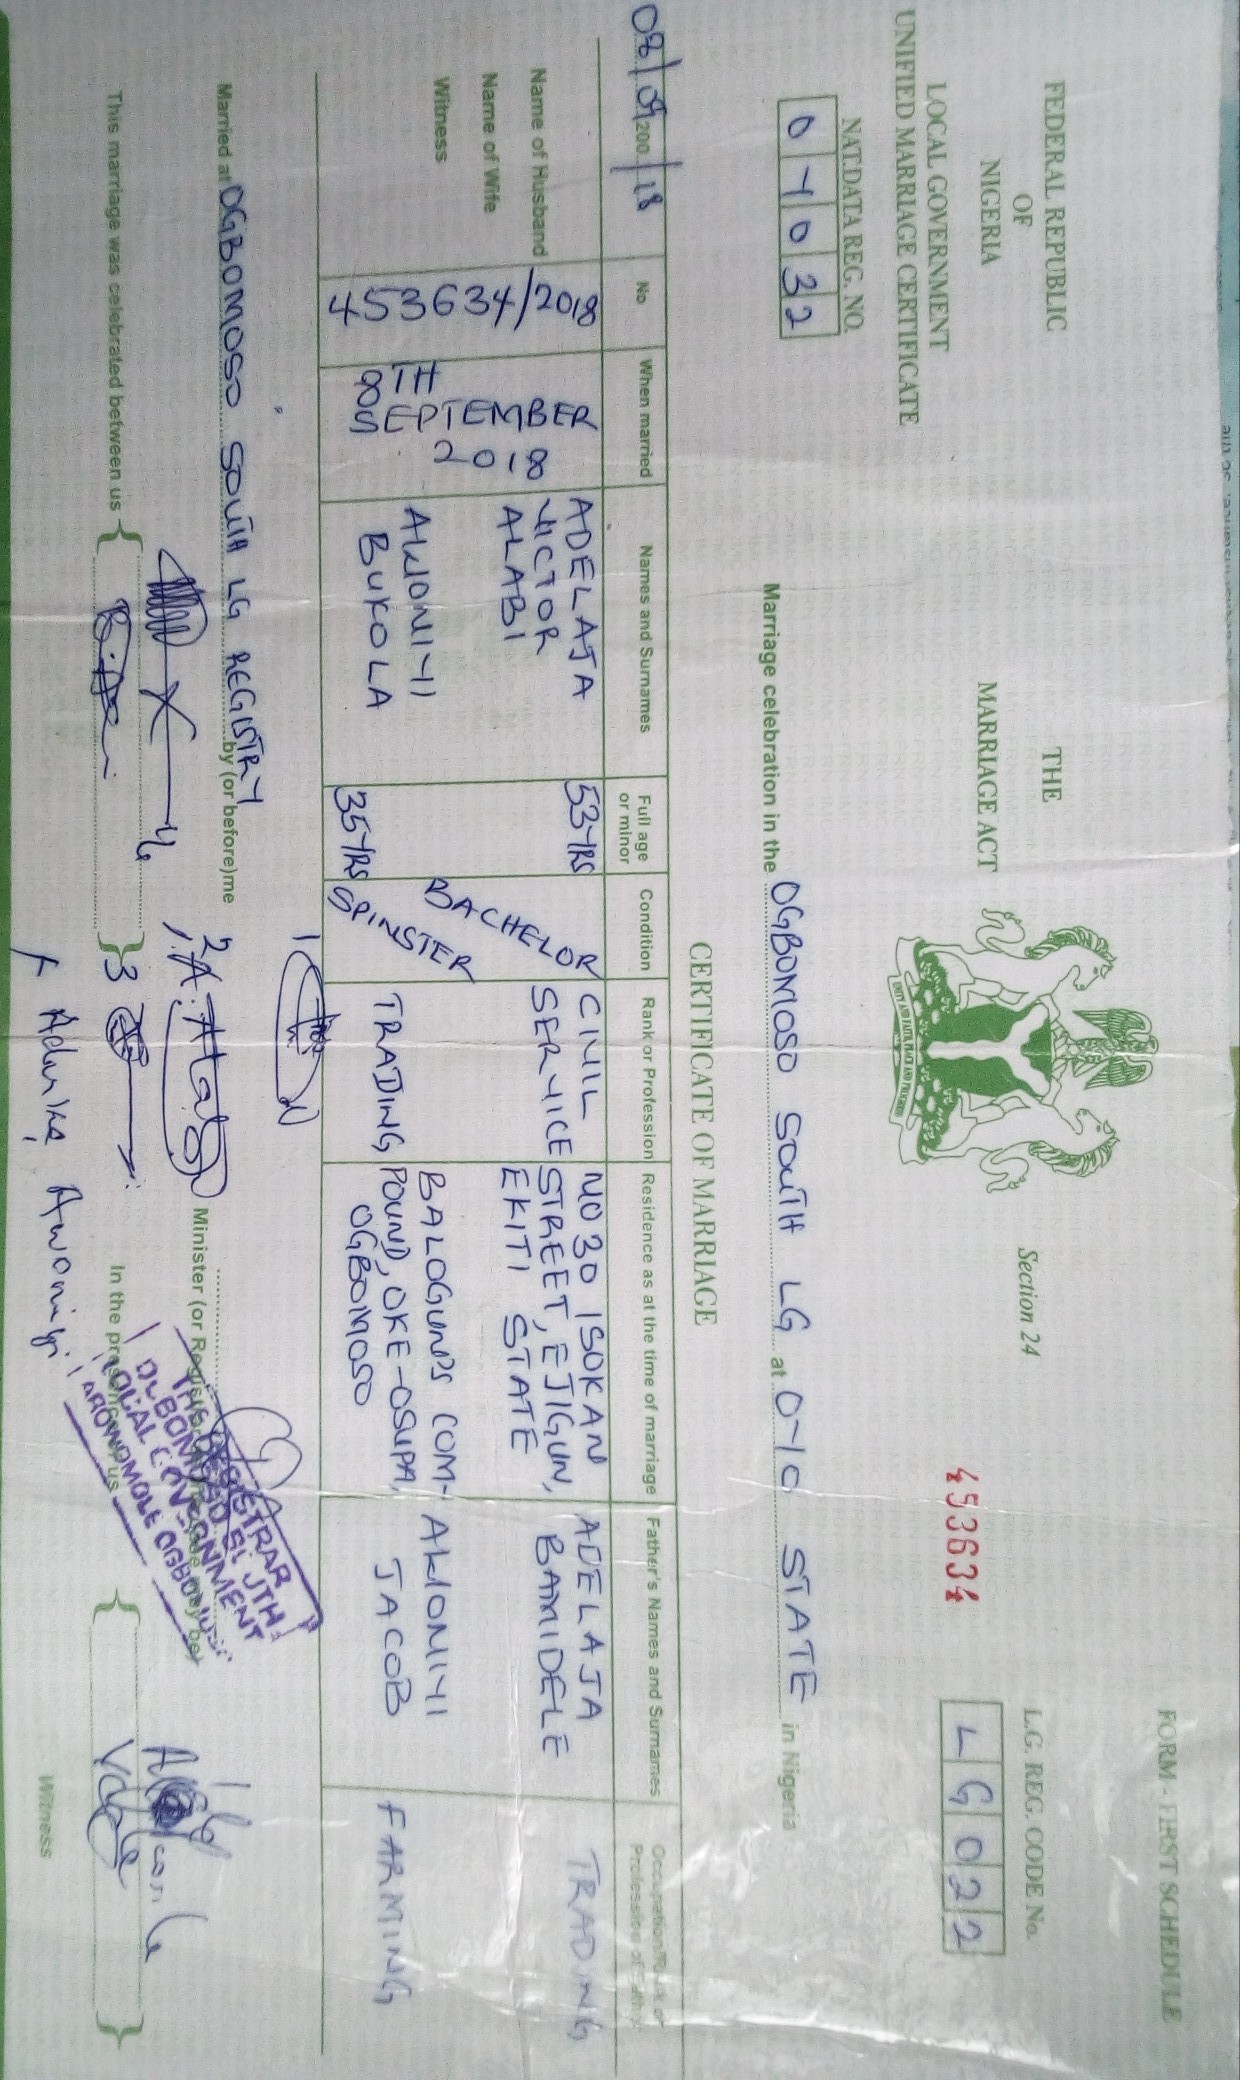 FORM - FIRST SCHEDULE
FEDERAL REPUBLIC
OF
NIGERIA
LOCAL GOVERNMENT
UNIFIED MARRIAGE CERTIFICATE
NAT.DATA REG. NO.
0 Y 0 3 2
THE
MARRIAGE ACT
Section 24
UNITY AND FAITH, PEACE AND PROGRESS
L.G. REG. CODE No.
L G 0 2 2
453634
Marriage celebration in the OGBOMOSO SOUTH LG at OYO STATE in Nigeria
CERTIFICATE OF MARRIAGE
08/09/200 /18
No
When married
Names and Surnames
Full age or minor
Condition
Rank or Profession
Residence as at the time of marriage
Father's Names and Surnames
Occupation/Rank or Profession of Father
Name of Husband
Name of Wife
Witness
453634/2018
8TH
SEPTEMBER
2018
ADELAJA
VICTOR
ALABI
53YRS
BACHELOR
CIVIL
SERVICE
NO 30 ISOKAN
STREET, EJIGUN,
EKITI STATE
ADELAJA
BAMIDELE
TRADING
AWONIYI
BUKOLA
35YRS
SPINSTER
TRADING
BALOGUN'S COM-
POUND, OKE-OSUPA,
OGBOMOSO
AWONIYI
JACOB
FARMING
Married at OGBOMOSO SOUTH LG REGISTRY by (or before) me
Minister (or Registrar
THE REGISTRAR
OGBOMOSO SOUTH
LOCAL GOVERNMENT
AROWOMOLE OGBOMOSO
This marriage was celebrated between us
In the presence of us
Witness
Adunke Awoniyi